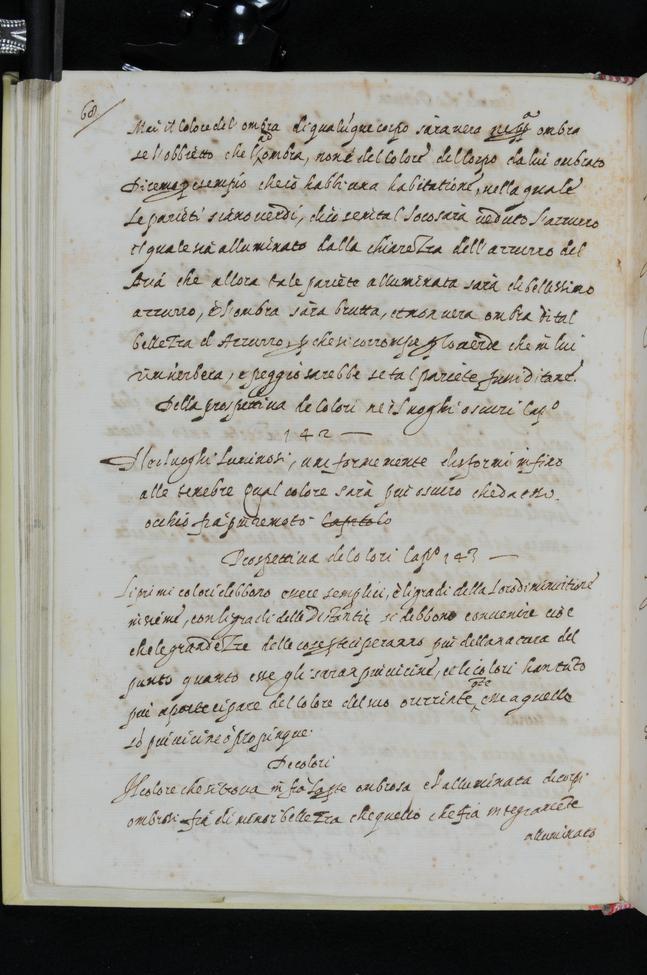 68
Mai il Colore del ombra di qualu͂que corpo sarà vero ombra
se l'obbietto che l'ombra, non è del Colore del corpo da lui ombrato
Diremo p esempio che io habbi una habitatione, nella quale
Le pariéti siano verdi, dico se in tal loco sarà veduto l'azurro
il quale sia alluminato dalla chiarezza dell'azzurro del
Aria che allora tale pariéte alluminata sarà di belissimo
azzurro, è l'ombra sara brutta, et non vera ombra di tal
bellezza d'Azzurro, p che si corrompe p lo verde che in lui
rinverbera, e peggio sarebbe se tal pariete fussi di tanè.
Della prospettiva de Colori ne i luoghi oscuri Capo
142 —
Ne luoghi Luminosi, uniformemente disformi insino
alle tenebre qual colore sarà piu oscuro che da esso
occhio fia piu remoto Capitolo
Prospettiva de Colori Capo 143 —
Li primi colori debbono essere semplici, è li gradi della Loro diminuitione
insieme, con li gradi delle Distantie si debbono convenire cioè
che le grandezze delle cose participeranno piu della natura del
punto quanto esse gli saran piu vicine, et li colori han tãto
piu a partecipare del colore del suo orizzonte, che a quello
sò piu vicine ò propinque.
De colori
Il colore che si trova in fra la pte ombrosa e l'alluminata di corpi
ombrosi fia di minor bellezza che quello che fia integramẽte
alluminato